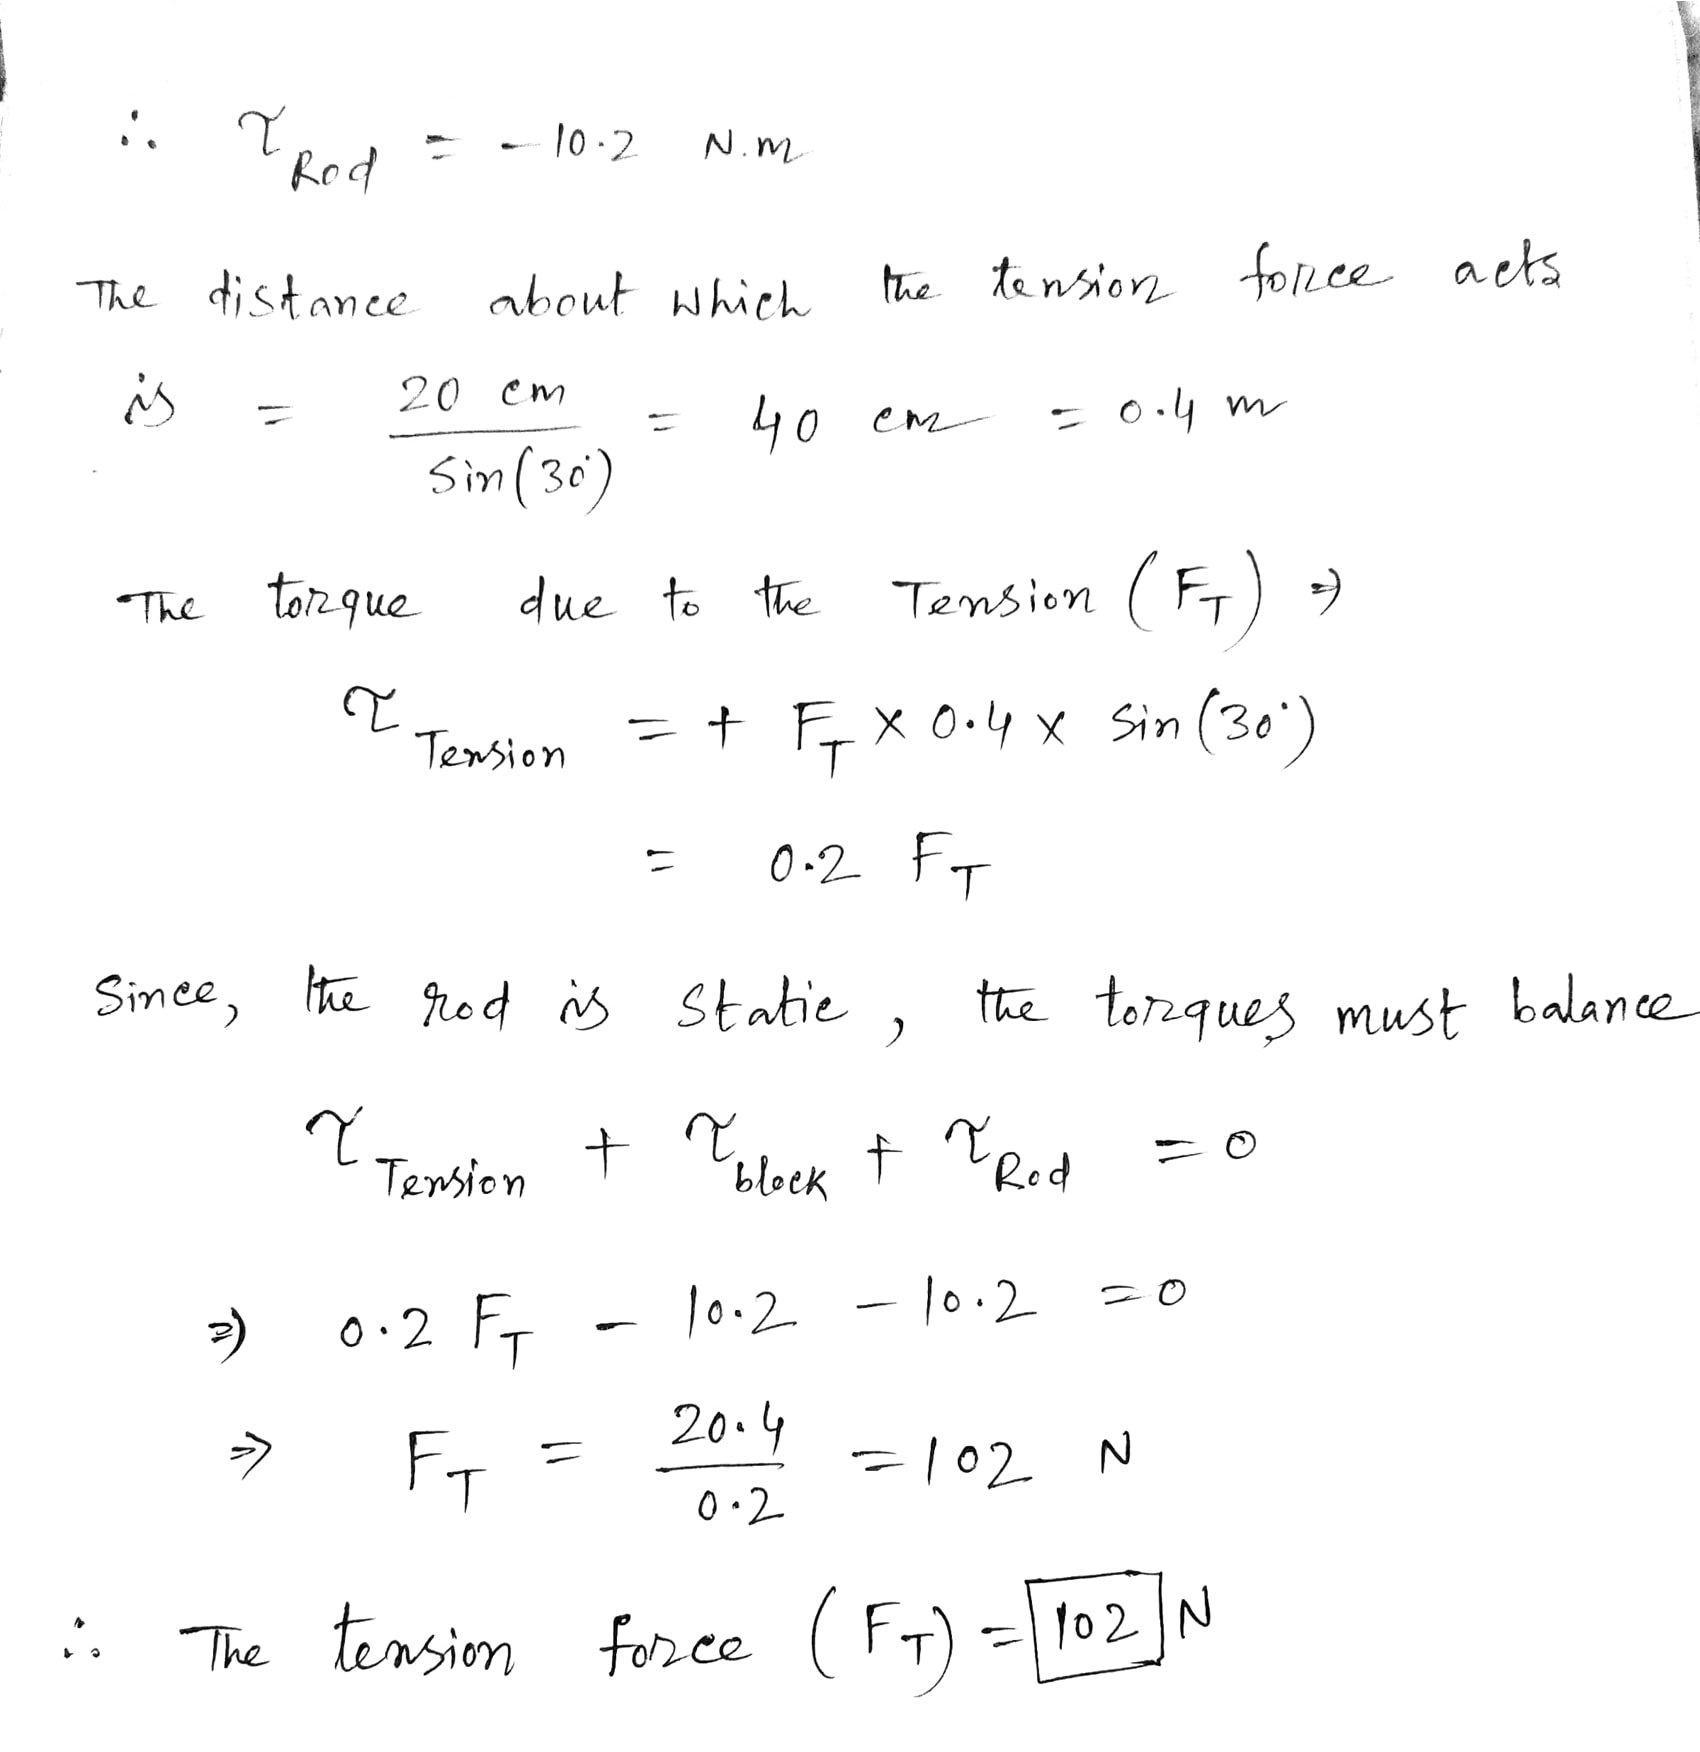 ∴ τ_Rod = -10.2 N.m
The distance about which the tension force acts
is = 20 cm / Sin(30°) = 40 cm = 0.4 m
The torque due to the Tension (F_T) ⇒
τ_Tension = + F_T × 0.4 × Sin(30°)
= 0.2 F_T
Since, the rod is static, the torques must balance
τ_Tension + τ_block + τ_Rod = 0
⇒ 0.2 F_T - 10.2 - 10.2 = 0
⇒ F_T = 20.4 / 0.2 = 102 N
∴ The tension force (F_T) = 102 N